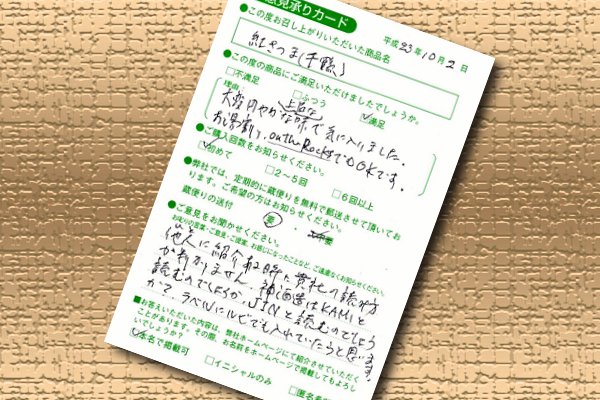 意見承りカード
平成23年10月2日
●この度お召し上がりいただいた商品名
紅さつま(千鶴)
●この度の商品にご満足いただけましたでしょうか。
□不満足 □ふつう ☑満足
理由
大変円やかな味で気に入りました。
上品な
お湯割り、on the RocksでもOKです。
●ご購入回数をお知らせください。
☑初めて □2〜5回 □6回以上
●弊社では、定期的に蔵便りを無料で郵送させて頂いてお
ります。ご希望の方はお知らせください。
蔵便りの送付 要・不要
●ご意見をお聞かせください。
お叱りの言葉・ご意見・ご提案、お感じになったことなど、ご遠慮なくお知らせください。
他人に紹介する時に貴社の読み方
が判かりません。神酒造はKAMIと
読むのでしょうか、JINと読むのでしょう
か? ラベルにルビでも入れていたらと思います。
■お答えいただいた内容は、弊社ホームページにて紹介させていただく
ことがあります。その際、お名前をホームページで掲載してもよろし
いでしょうか?
☑本名で掲載可 □イニシャルのみ □匿名希